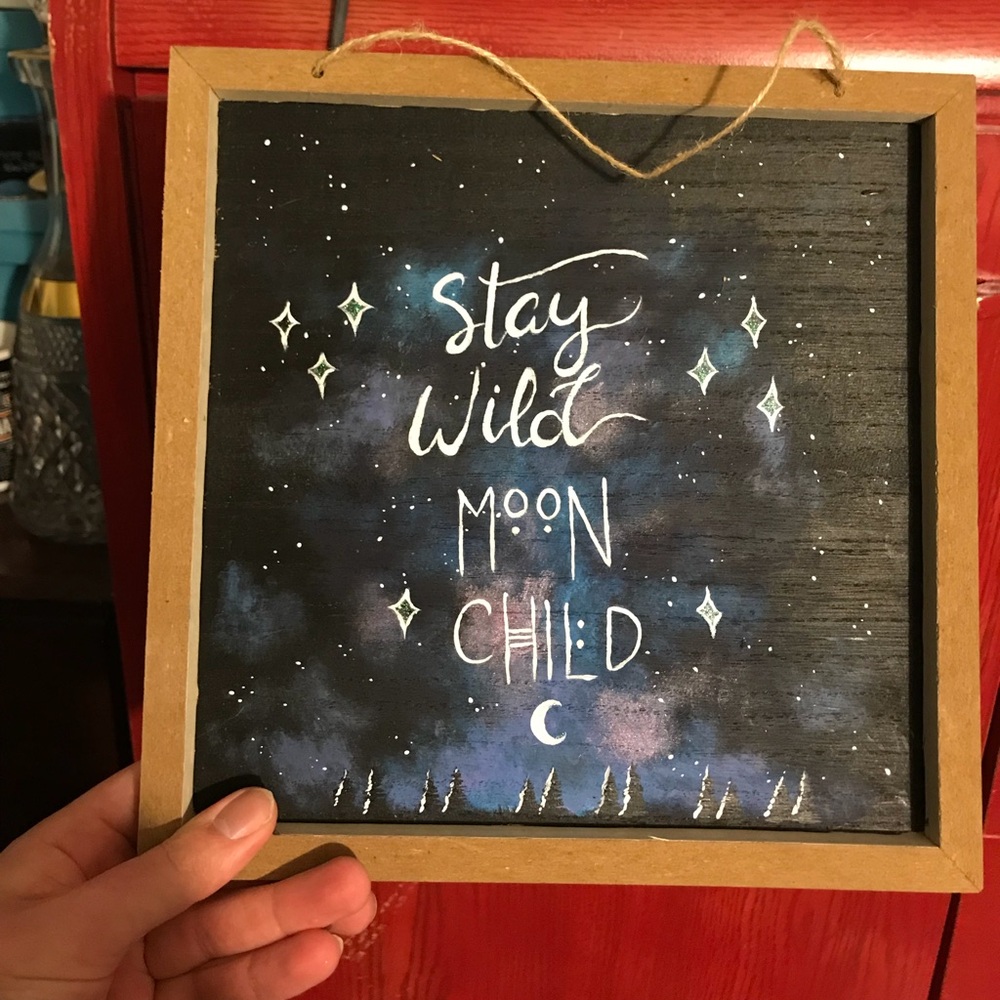 Stay
Wild
MOON
CHILD